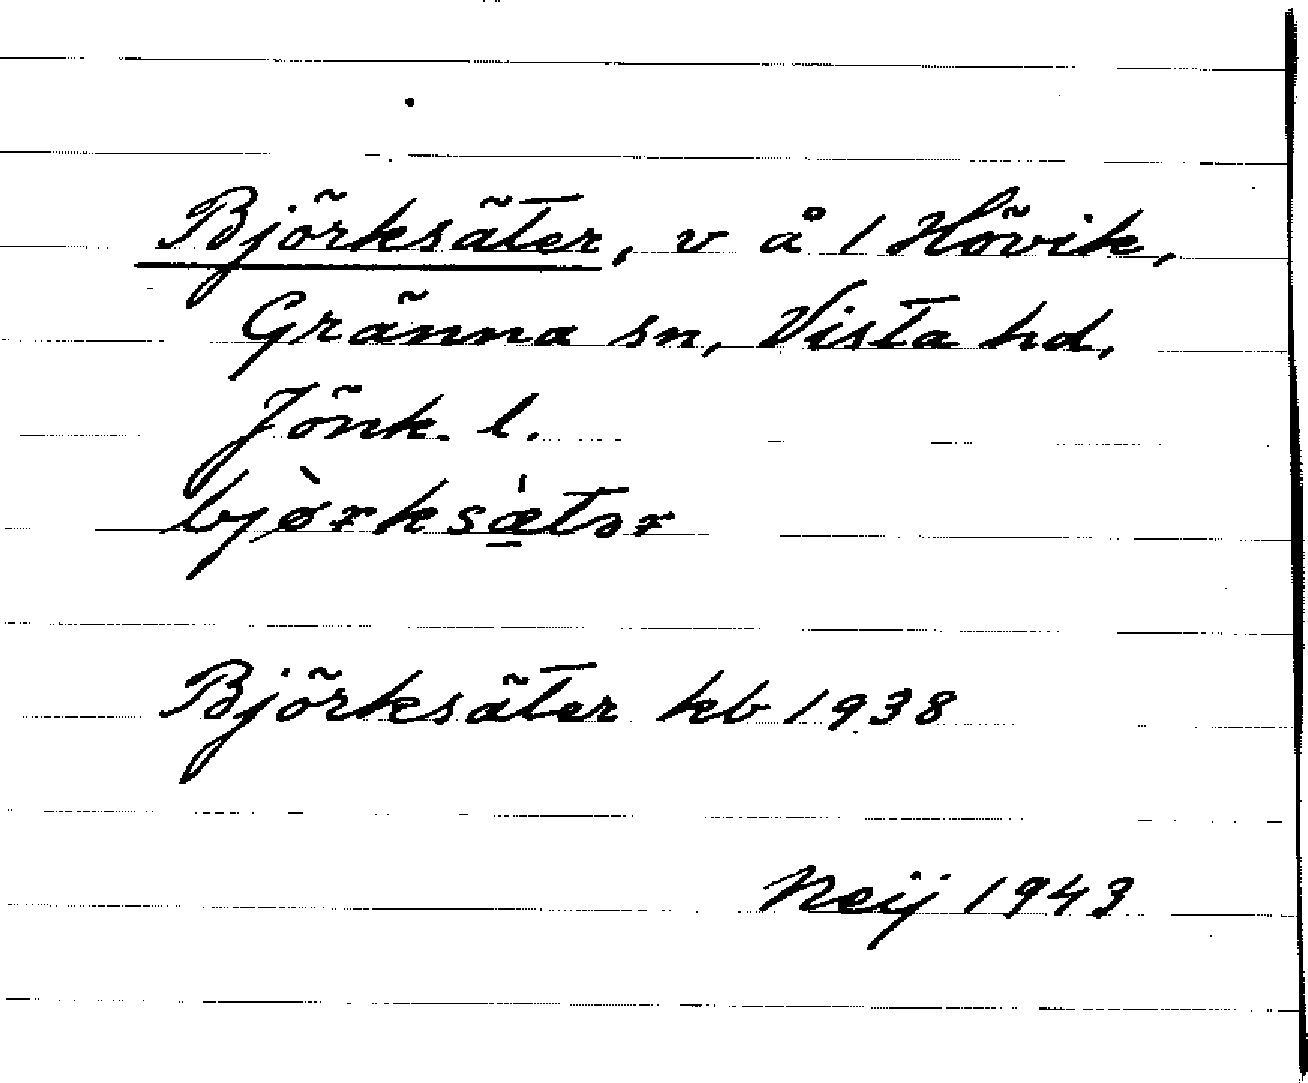 Björksäter, v å 1 Hövik,
Gränna sn, Vista hd,
Jönk. l.
bjø̀rksæ̠̍tər
Björksäter kb 1938
Neij 1943